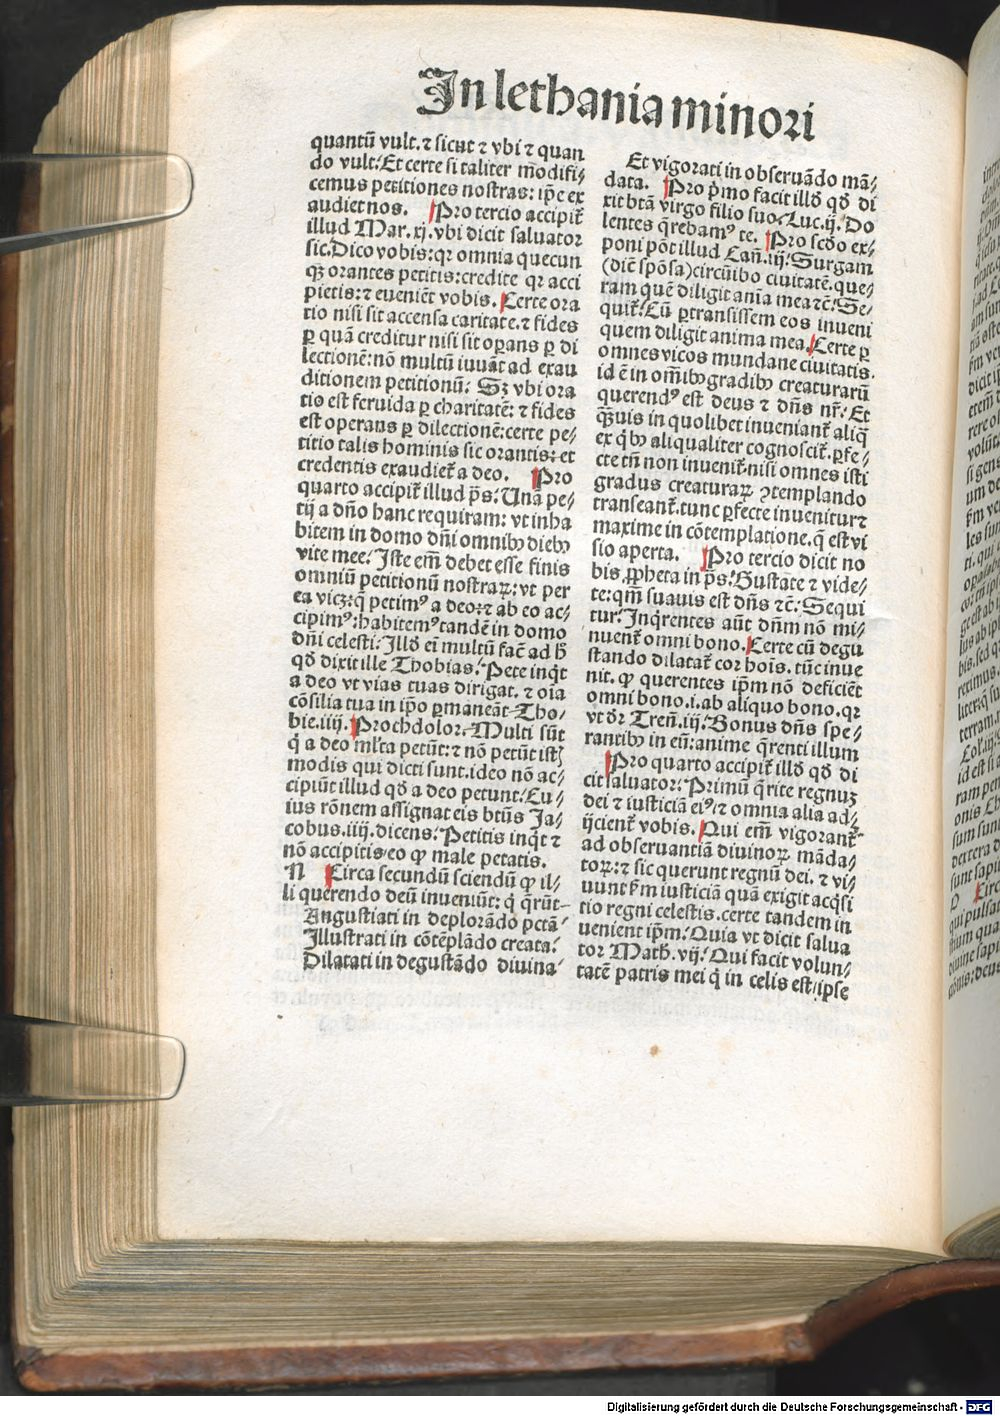 In lethania minori
quantū vult. ⁊ sicut ⁊ vbi ⁊ quan
do vult. Et certe si taliter mōdifi⸗
cemus petitiones nostras: ip̄e ex
audiet nos. Pro tercio accipit̄
illud Mar. xj. vbi dicit saluator
sic. Dico vobis: qꝛ omnia quecun
qꝫ orantes petitis: credite qꝛ acci
pietis: ⁊ eueniēt vobis. Certe ora
tio nisi sit accensa caritate. ⁊ fides
ꝑ quā creditur nisi sit oꝑans ꝑ di
lectionē: nō multū iuuāt ad exau
ditionem petitionū. Sꝫ vbi ora
tio est feruida ꝑ charitatē: ⁊ fides
est operans ꝑ dilectionē: certe pe⸗
titio talis hominis sic orantis: et
credentis exaudiet̄ a deo. Pro
quarto accipit̄ illud p̄s. Unā pe⸗
tij a dño hanc requiram: vt inha
bitem in domo dñi omnibꝰ diebꝰ
vite mee. Iste em̄ debet esse finis
omniū petitionū nostraꝝ: vt per
ea vicꝫ: q̄ petimꝰ a deo: ⁊ ab eo ac⸗
cipimꝰ: habitemꝰ tandē in domo
dñi celesti. Illō ei multū fac̄ ad h̄
qō dixit ille Thobias. Pete inq̇t
a deo vt vias tuas dirigat. ⁊ oīa
cōsilia tua in ip̄o ꝑmaneāt Tho⸗
bie. iiij. Prochdolor. Multi sūt
q̇ a deo ml̄ta petūt: ⁊ nō petūt
modis qui dicti sunt. ideo nō ac⸗
cipiūt illud qō a deo petunt. Cu⸗
ius rōnem assignat eis btūs Ja⸗
cobus. iiij. dicens. Petitis inq̇t ⁊
nō accipitis: eo ꝙ male petatis.
N Circa secundū sciendū ꝙ il⸗
li querendo deū inveniūt: q̇ q̄rūt
Angustiati in deplorādo pctā
Illustrati in cōtēplādo creata.
Dilatati in degustādo diuina
Et vigorati in obseruādo mā⸗
data. Pro p̄mo facit illō qō di
xit btā virgo filio suo. Luc. ij. Do
lentes q̄rebamꝰ te. Pro scōo ex⸗
poni pōt illud Cañ. iij. Surgam
(diē spōsa) circūibo ciuitatē. que⸗
ram quē diligit anīa mea ⁊c̄. Se⸗
quit̄. Cū ꝑtransissem eos inueni
quem diligit anima mea. Certe ꝑ
omnes vicos mundane ciuitatis.
id ē in om̄ibꝰ gradibꝰ creaturarū
querendꝰ est deus ⁊ dñs nr̄. Et
qꝫuis in quolibet inueniant̄ aliq̄
ex q̇bꝰ aliqualiter cognoscit̄. ꝑfe⸗
cte tn̄ non inuenit̄. nisi omnes isti
gradus creaturaꝝ ꝯtemplando
transeant̄. tunc ꝑfecte inuenitur ⁊
maxime in cōtemplatione. q̄ est vi
sio aperta. Pro tercio dicit no
bis ꝓpheta in p̄s. Gustate ⁊ vide⸗
te: qm̄ suauis est dñs ⁊c̄. Sequi
tur. Inq̇rentes aūt dñm nō mi⸗
nuent̄ omni bono. Certe cū degu
stando dilatat̄ cor hoīs. tūc inue
nit. ꝙ querentes ip̄m nō deficiēt
omni bono. i. ab aliquo bono. qꝛ
vt dr̄ Treñ. iij. Bonus dñs spe⸗
rantibꝰ in eū: anime q̄renti illum
Pro quarto accipit̄ illō qō di
cit saluator. Primū q̄rite regnuꝫ
dei ⁊ iusticiā eiꝰ. ⁊ omnia alia ad⸗
ijcient̄ vobis. Qui em̄ vigorant̄
ad obseruantiā diuinoꝝ māda⸗
toꝝ: ⁊ sic querunt regnū dei. ⁊ vi⸗
uunt ẜm iusticiā quā exigit acq̇si
tio regni celestis. certe tandem in
uenient ip̄m. Quia vt dicit salua
tor Math. vij. Qui facit volun⸗
tatē patris mei q̇ in celis est: ipse
Digitalisierung gefördert durch die Deutsche Forschungsgemeinschaft - DFG